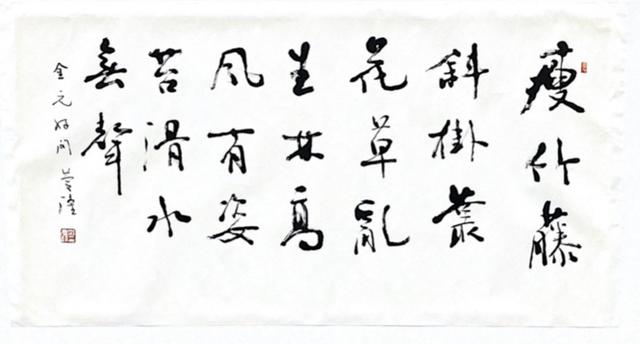 瘦竹藤
斜掛叢
花草亂
生林高
风有姿
苔滑水
無聲
金元好问